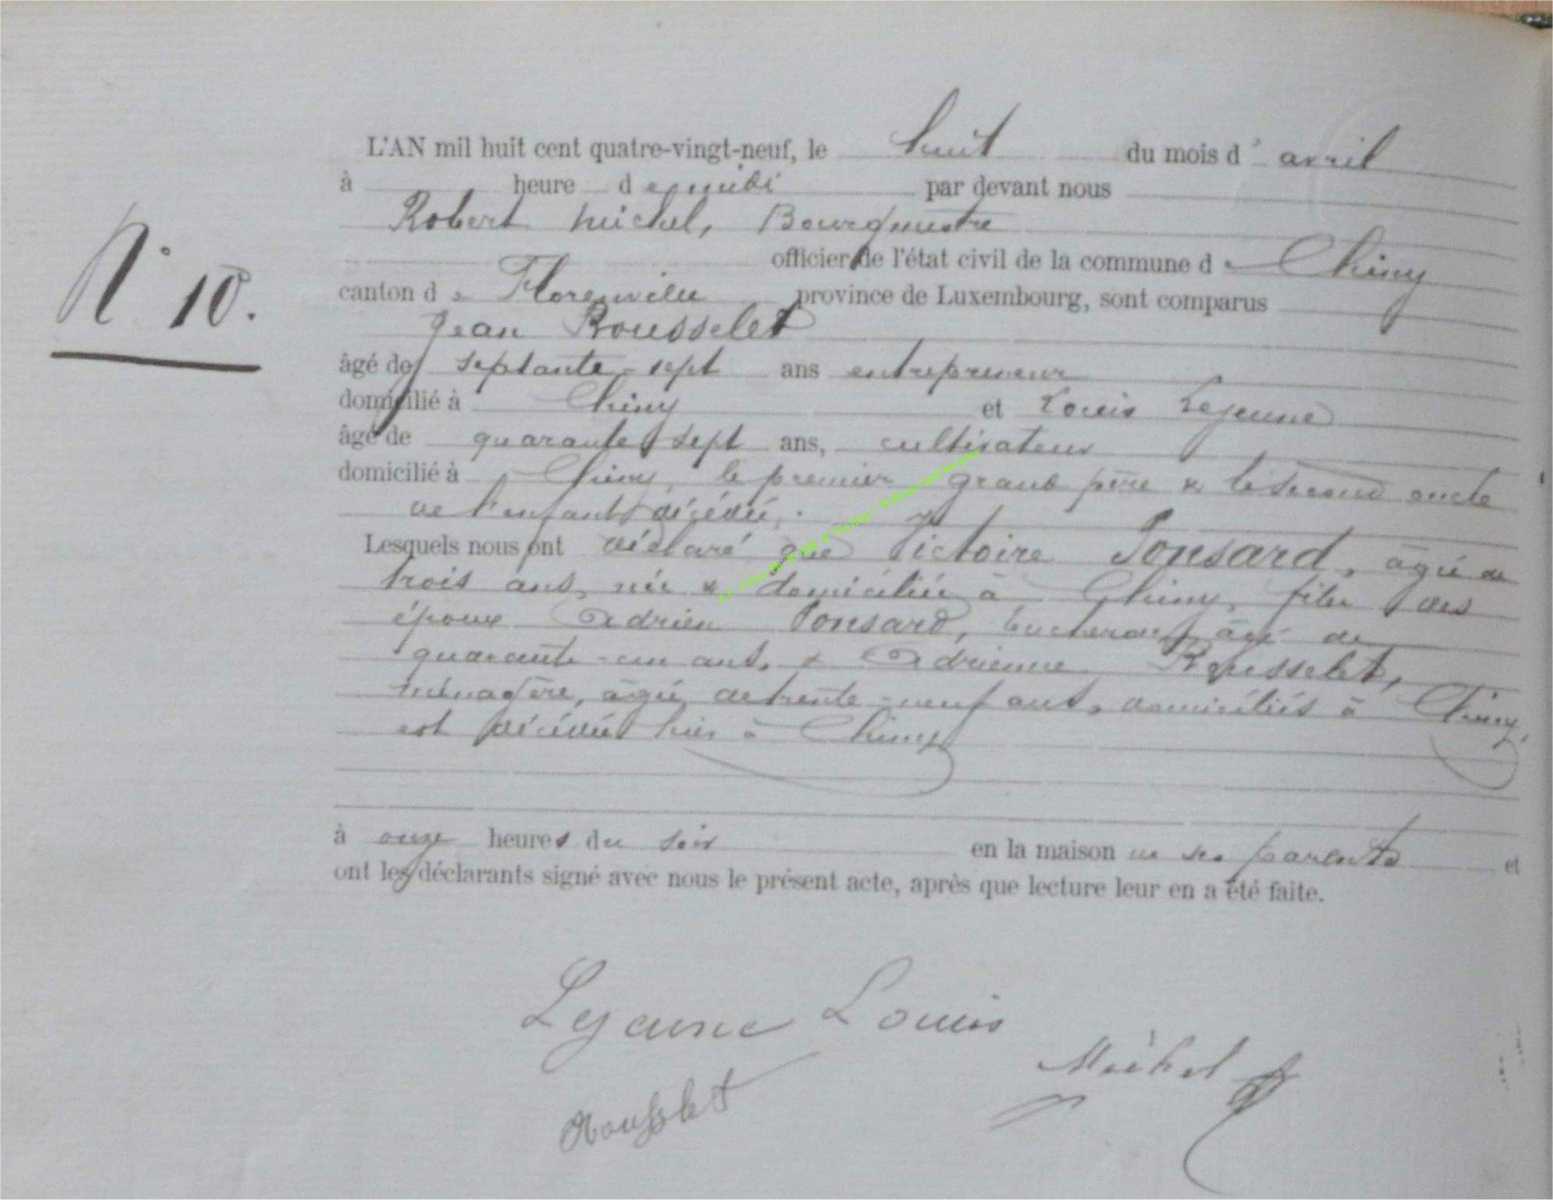 L'AN mil huit cent quatre-vingt-neuf, le huit du mois d'avril
à heure de midi par devant nous
Robert Michel, Bourgmestre
officier de l'état civil de la commune de Chiny
canton de Florenville province de Luxembourg, sont comparus
N° 10.
Jean Rousselet
âgé de septante-sept ans entrepreneur
domicilié à Chiny et Louis Lejeune
âgé de quarante sept ans, cultivateur
domicilié à Chiny, le premier grand père & le second oncle
de l'enfant décédée,
Lesquels nous ont déclaré que Victoire Ponsard, âgée de
trois ans, née & domiciliée à Chiny, fille des
époux Adrien Ponsard, bucheron, âgé de
quarante-un ans, & Adrienne Rousselet,
ménagère, âgée de trente-neuf ans, domiciliés à Chiny,
est décédée hier à Chiny
à onze heures du soir en la maison de ses parents et
ont les déclarants signé avec nous le présent acte, après que lecture leur en a été faite.
Lejeune Louis
Michel
Rousselet